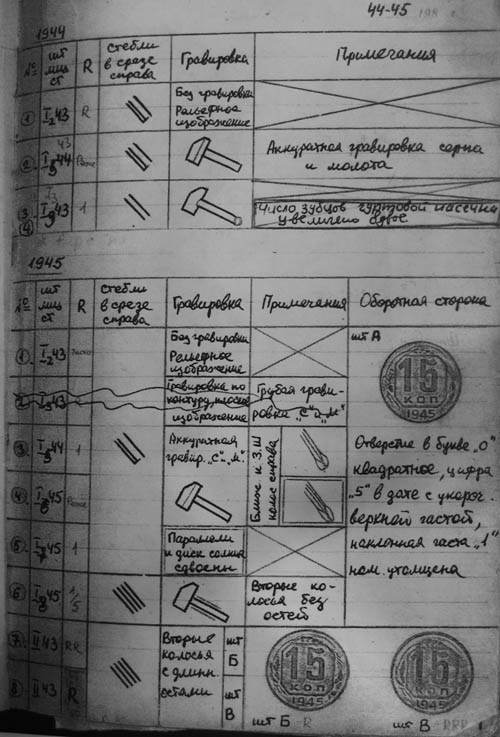 44-45 198 г.
1944
№ шт лиц ст R стебли в срезе справа Гравировка Примечания
1 I2 43 R Без гравировки
Рельефное
изображение
2 I5 44 Аккуратная гравировка серпа
и молота
3 43 1 Число зубцов гуртовой насечки
4 увеличено вдвое
1945
№ шт лиц ст R стебли в срезе справа Гравировка Примечания Оборотная сторона
1 I2 43 Без гравировки
Рельефное
изображение
шт А
15
КОП
1945
2 I5 43 Гравировка по
контуру, плоское
изображение
Грубая грави-
ровка "С" и "М"
3 I5 44 1 Аккуратная
гравир. "С" и "М".
Ближе к З.Ш
колос справа
Отверстие в букве "О"
квадратное, цифра
"5" в дате с укороч.
верхней частой,
наклонная часть "1"
ном. утолщена
4 I6 45
5 I7 45 1 Параллели
и диск солнца
сдвоены
6 I8 45 1/5 Вторые ко-
лосья без
остей
7 II 43 RR Вторые
колосья
с длинн.
остями
шт
Б
8 II 43 R шт
В
15
КОП
1945
шт Б - R
15
КОП
1945
шт В - RRR